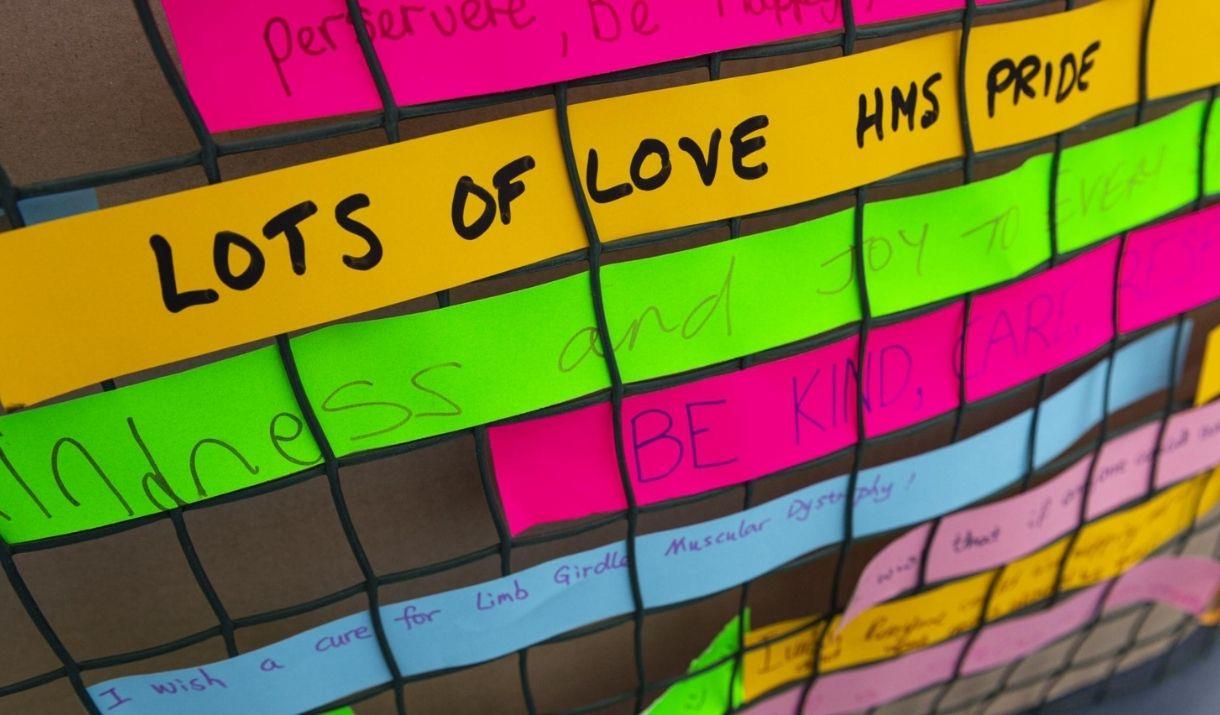 perservere, be happy,
LOTS OF LOVE HMS PRIDE
indness and JOY TO EVERY
BE KIND, CARE, RESP
I wish a cure for Limb Girdle Muscular Dystrophy!
that if